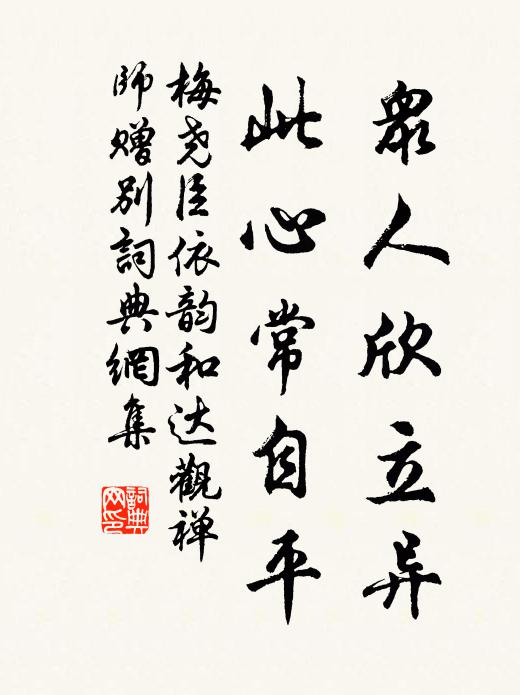 眾人欣立异
此心常自平
梅尧臣依韵和达觀禅
師赠别詞典網集
詞典
网印